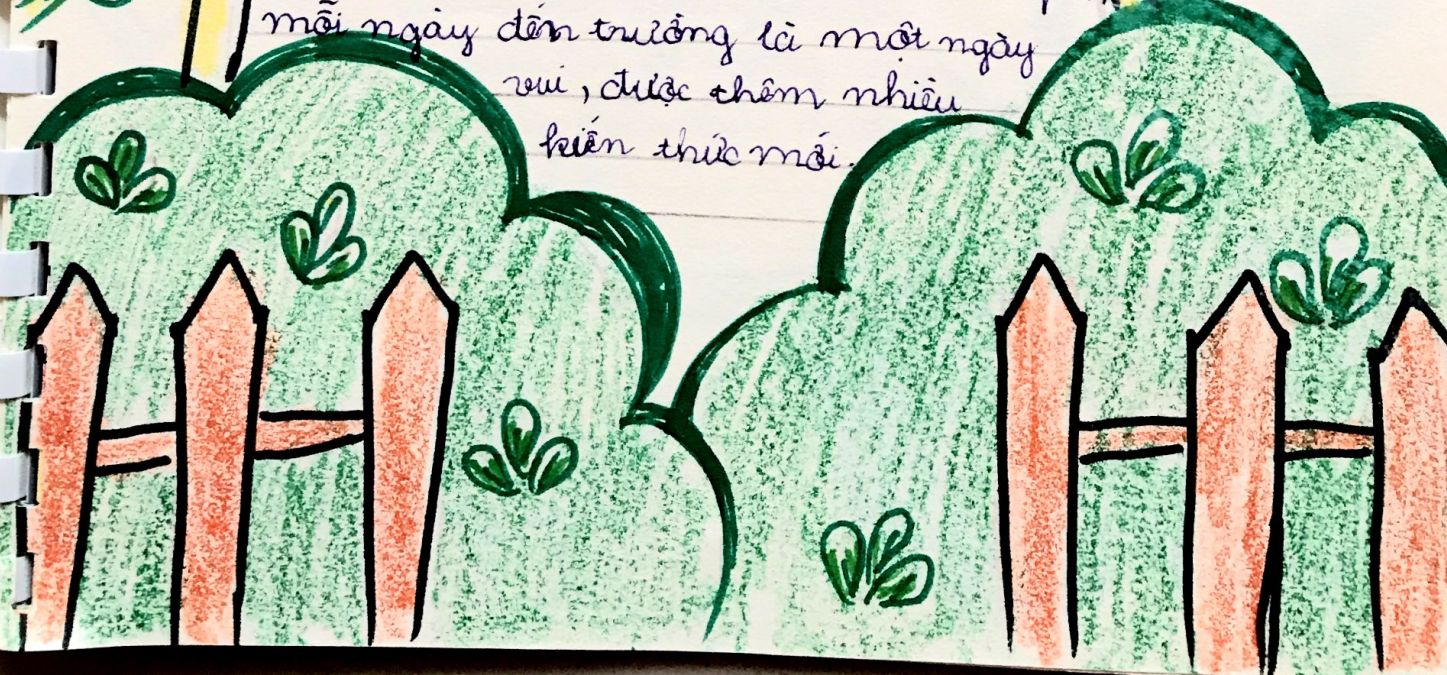 mỗi ngày đến trường là một ngày
vui, được thêm nhiều
kiến thức mới.